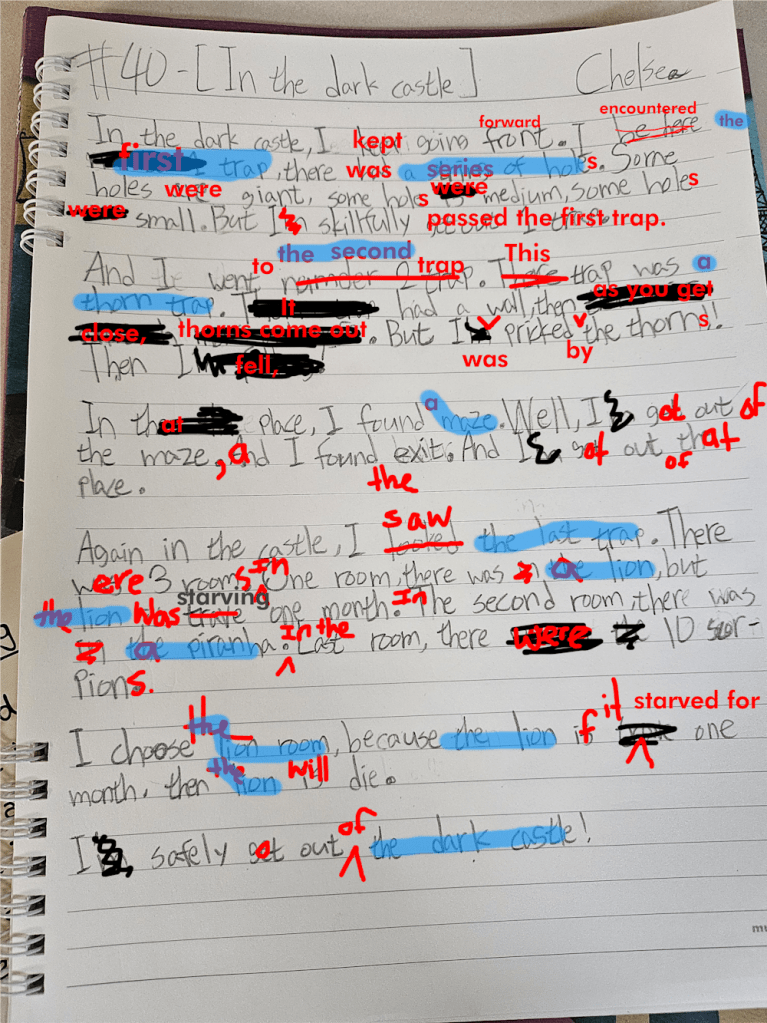 #40-[In the dark castle] Chelsea
forward encountered
In the dark castle, I kept going front. I be here the
first trap, there was a series of holes. Some
holes were giant, some holes were medium, some holes
were small. But I skillfully passed the first trap.
to the second trap This
And I went nummber 2 trap. There trap was a
thorn trap. It had a wall, then as you get
close, thorns come out. But I pricked the thorns!
Then I fell, was by
In that place, I found a maze. Well, I got out of
the maze, and I found exit. And I got out of that
place. the
saw
Again in the castle, I looked the last trap. There
were 3 rooms In One room, there was a lion, but
starving
the lion was one month. In The second room, there was
a piranha. In the Last room, there were 10 scor-
pions.
the if it starved for
I choose lion room, because the lion is one
month, then the lion will die.
of
I safely got out the dark castle!
mu